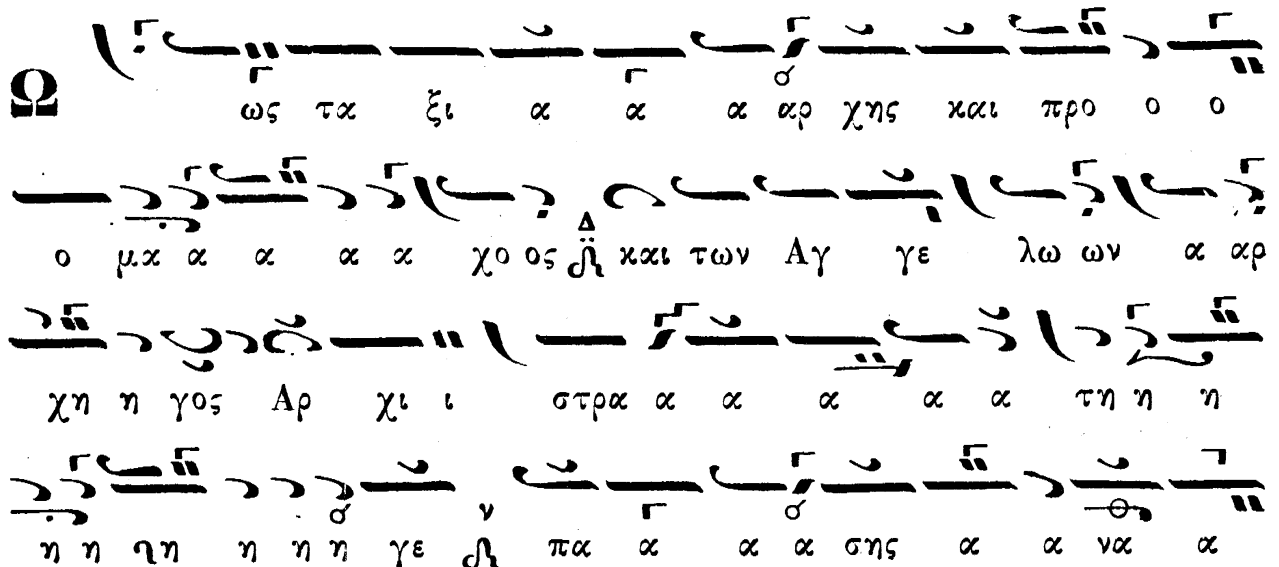 Ω ως τα ξι α α α αρ χης και προ ο ο
ο μα α α α α χο ος Δ και των Αγ γε λω ων α αρ
χη η γος Αρ χι ι στρα α α α α α τη η η
η η η η η γε ν πα α α α σης α α να α